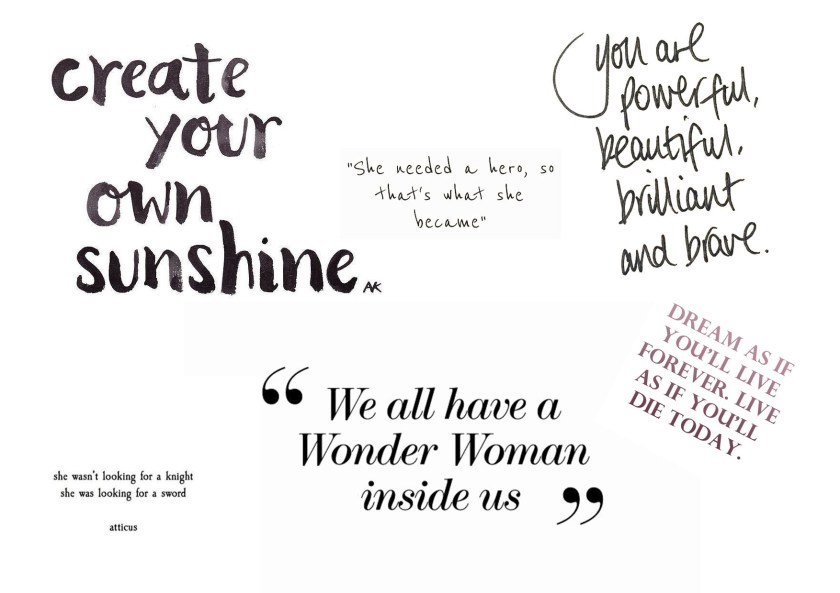 create
your
own
sunshine
AK
"She needed a hero, so
that's what she
became"
you are
powerful,
beautiful,
brilliant
and brave.
DREAM AS IF
YOU'LL LIVE
FOREVER. LIVE
AS IF YOU'LL
DIE TODAY.
“ We all have a
Wonder Woman
inside us ”
she wasn't looking for a knight
she was looking for a sword
atticus